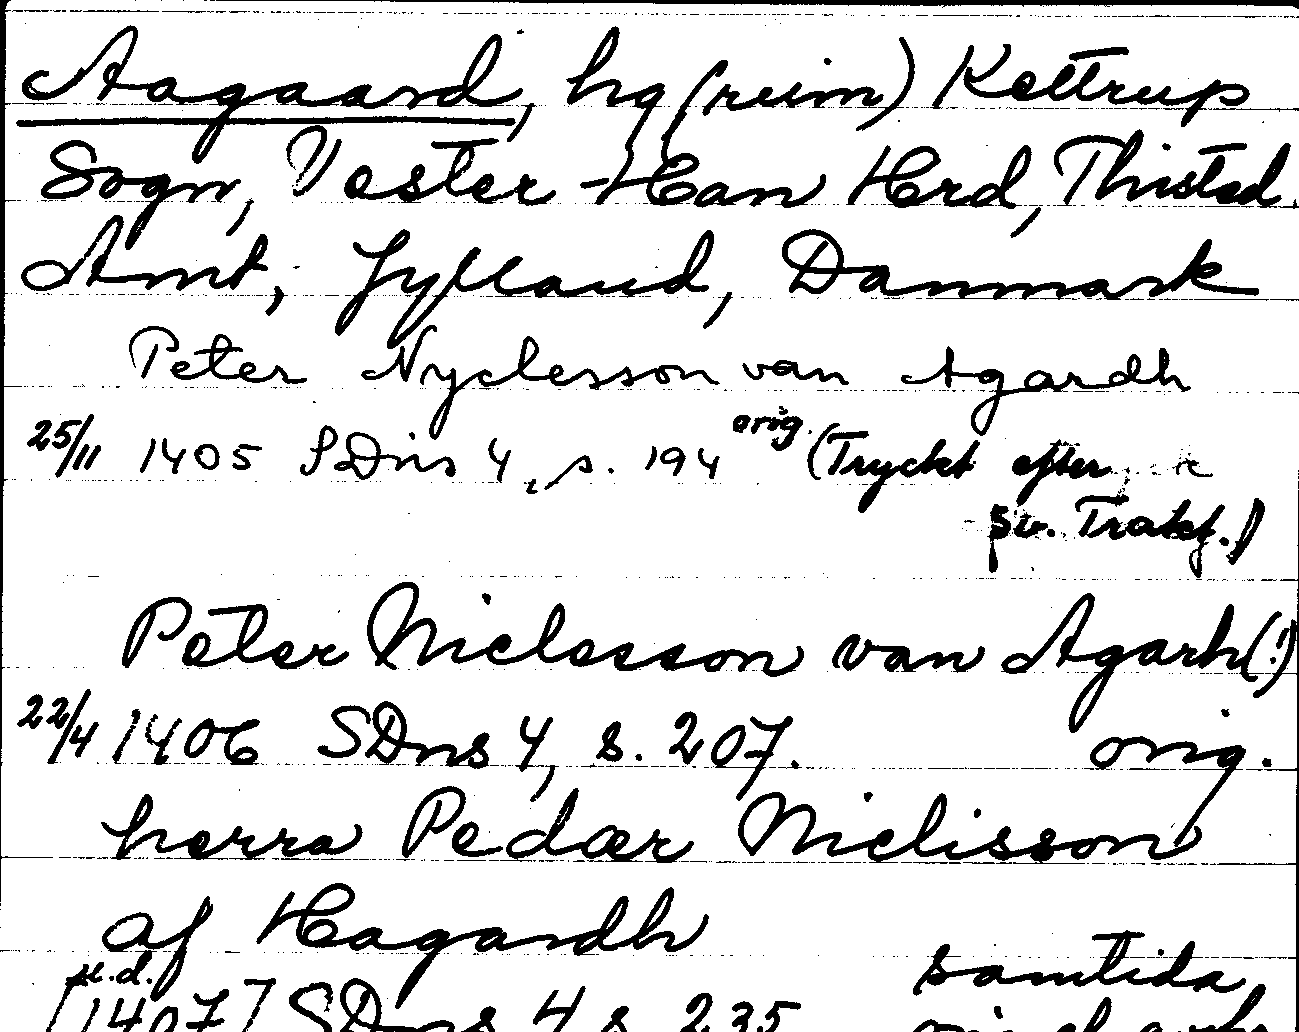 Aagaard, hg (ruin) Kettrup
Sogn, Vester Han Herd, Thisted
Amt, Jylland, Danmark
Peter Nyclesson van Agardh
25/11 1405 SDns 4, s. 194 orig. (Tryckt efter
Sv. Trakt.)
Peter Niclesson van Agarh (!)
22/4 1406 SDns 4, s. 207. orig.
herra Pedær Niclisson
af Hagardh
u.d. samtida
[1407] SDns 4 s. 235